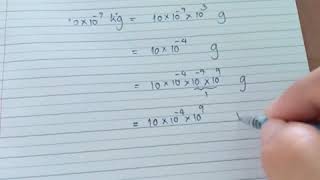 10×10⁻⁷ kg = 10×10⁻⁷×10³ g
= 10×10⁻⁴ g
= 10×10⁻⁴×10⁻⁹×10⁹ g
1
= 10×10⁻⁴×10⁹